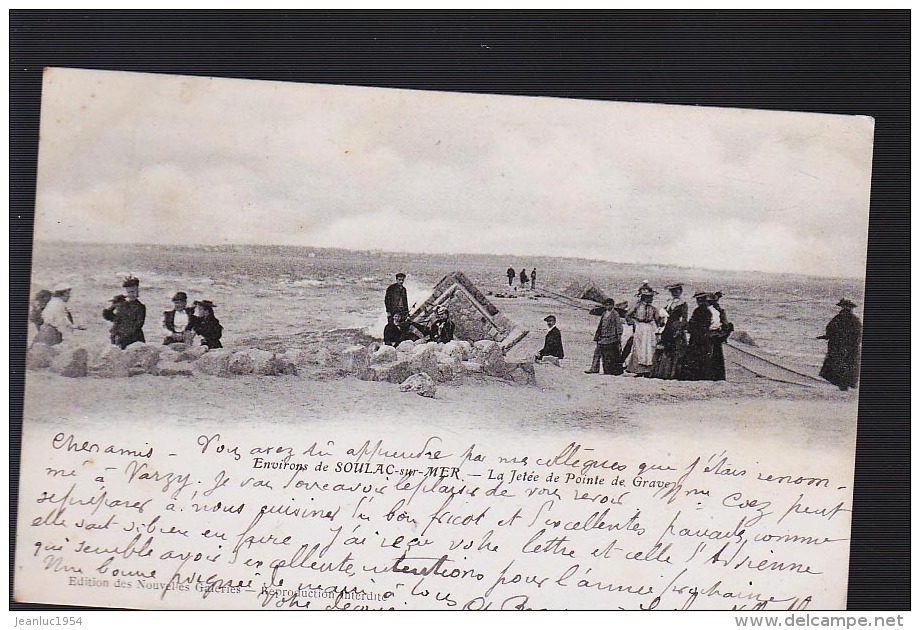 Chers amis - Vous avez dû apprendre par mes collègues que j'étais renom-
Environs de SOULAC-sur-MER. — La Jetée de Pointe de Grave
mé à Varzy. Je vais avoir le plaisir de vous revoir. Mme Coez peut
se préparer à nous cuisiner un bon fricot et d'excellentes, comme
elle sait si bien en faire. J'ai reçu votre lettre et celle d'
qui semble avoir d'excellentes intentions pour l'année prochaine
Une bonne poignée de main à tous
Edition des Nouvelles Galeries — Reproduction interdite
Votre
©jeanluc1954
www.delcampe.net